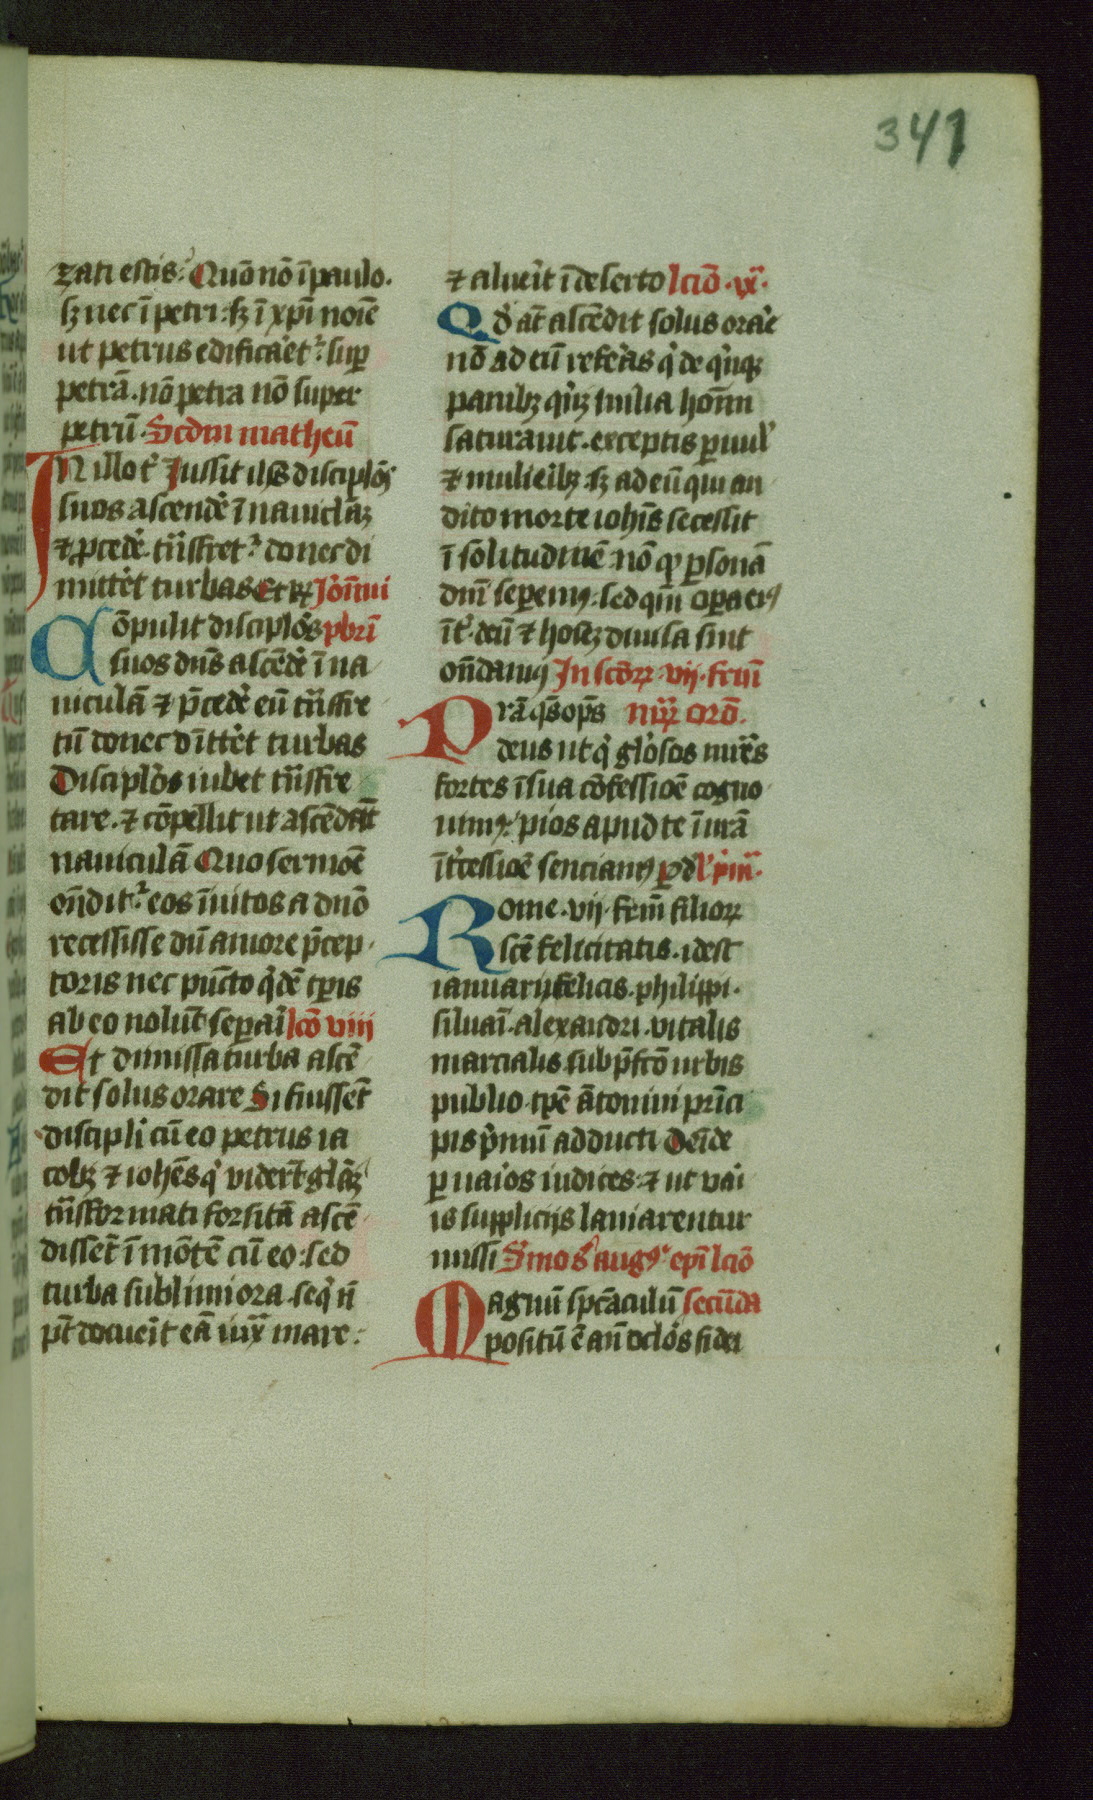 341
zati estis: Quō nō ī paulo.
sʒ nec ī petri: sʒ ī xp̄i noīe
ut petrus edificaret᷑: sup̄
petrā. nō petra nō super
petrū. Scdm matheū
IN illo t̄ Jussit ihs discip̄los
suos ascende᷑ ī nauiclāʒ
⁊ p̄cede᷑ tn̄sfret᷑ donec di
mitte᷑t turbas Et R̄ Jōīmi
Cōpulit discip̄los pbrī
suos dn̄s ascēde᷑ ī na
uiculā ⁊ p̄cede᷑ eū tn̄sfre
tū donec dītte᷑t turbas
Discip̄los iubet tn̄sfre
tare. ⁊ cōpellit ut ascēdāt
nauiculā Quo sermōe
on̄dit᷑ eos īuitos a dn̄o
recessisse dū amore p̄cep
toris nec pūcto q̇dē tp̄is
ab eo nolūt sep̱ai᷑ lcō viii
Et dimissa turba ascē
dit solus orare Si fuissēt
discipli cū eo petrus ia
cobʒ ⁊ iohēs q̇ viderūt gl̄aʒ
tn̄sformati forsitā ascē
dissēt ī mōtē cū eo: sed
turba sublimiora seq̇ n̄
pt̄ docue᷑it eā iux̄ mare:
⁊ alue᷑it ī deserto lciō. ix.
Qđ āt ascēdit solus ora᷑e
nō ad eū refe᷑as q̇ de q̇nqʒ
panibʒ q̇nqʒ milia hoīm
saturauit. exceptis p̱uul᷑
⁊ mulie᷑ibʒ sʒ ad eū qui au
dito morte ioh̄is secessit
ī solitudinē nō qꝫ p̱sonā
dn̄i sep̱emꝰ: sed qm̄ op̱a eiꝰ
īt᷑ deū ⁊ hoīeʒ diuisa sint
on̄damꝰ In scōꝝ. vij. frm̄
Prā qs op̄s mr̄ꝝ orō.
deus ut q̇ glōsos mr̄es
fortes ī sua cōfessiōe cogno
uimꝰ: pios apud te ī nr̄ā
īt᷑cessiōe senciamꝰ p̱ d l̄ ṗm̄.
Rome. vij. frm̄ filioꝝ
scē felicitatis. idest
ianuarij felicis. philippi.
siluāi. alexandri. vitalis
marcialis. sub p̄fcō urbis
publio. tp̄e ātonini prīci
pis ṗmū adducti Deīde
p̱ ua᷑ios iudices: ⁊ ut va᷑i
is supplicijs laniarentur
missi Smo s̄ augꝰ. ep̄i lciō
Magnū spc̄aculū secūda
positū ē an̄ oclōs fidei